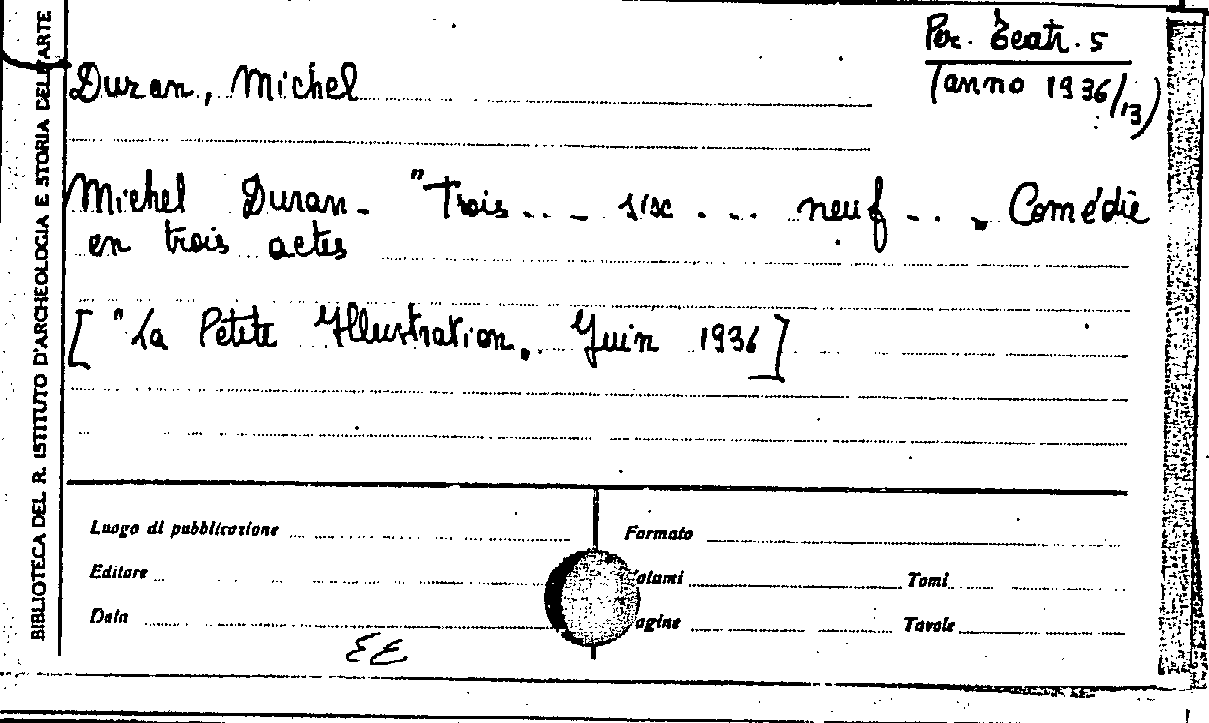 Per. Teatr. 5
(anno 1936/13)
Duran, Michel
Michel Duran - "Trois... six... neuf... Comédie
en trois actes
["La Petite Illustration, Juin 1936]
BIBLIOTECA DEL R. ISTITUTO D'ARCHEOLOGIA E STORIA DELL'ARTE
Luogo di pubblicazione
Formato
Editore
Volumi
Tomi
Data
Pagine
Tavole